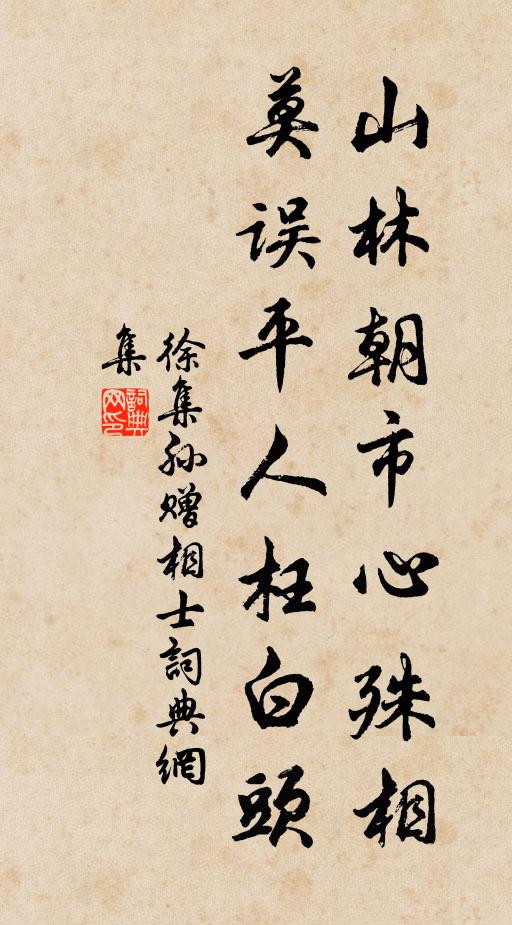 山林朝市心殊相
莫误平人枉白頭
徐集孙赠相士詞典網
集
詞典网印